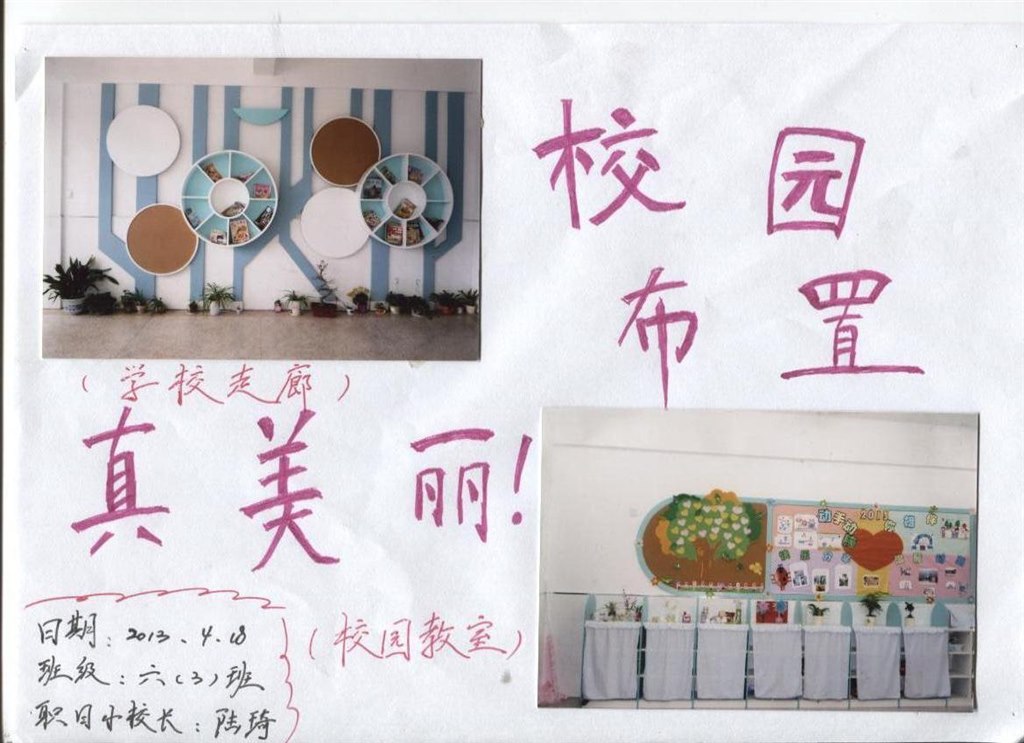 校园
布置
（学校走廊）
真美丽！
（校园教室）
日期：2013.4.18
班级：六（3）班
职日小校长：陆琦
动手动
2013